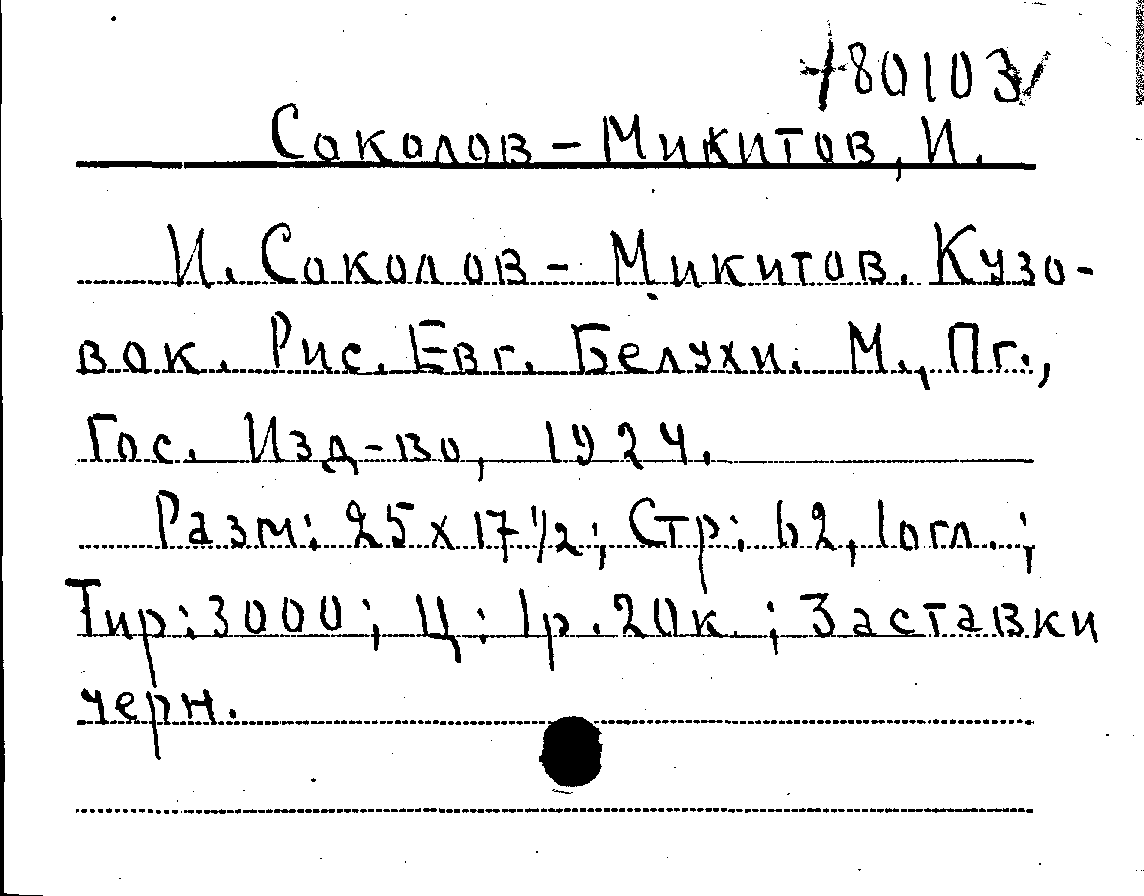 +80103✓
Соколов-Микитов, И.
И. Соколов-Микитов. Кузо-
вок. Рис. Евг. Белухи. М., Пг.,
Гос. Изд-во, 1924.
Разм: 25x17 1/2; Стр: 62, 1 огл.;
Тир: 3000; Ц: 1р. 20к.; Заставки
черн.